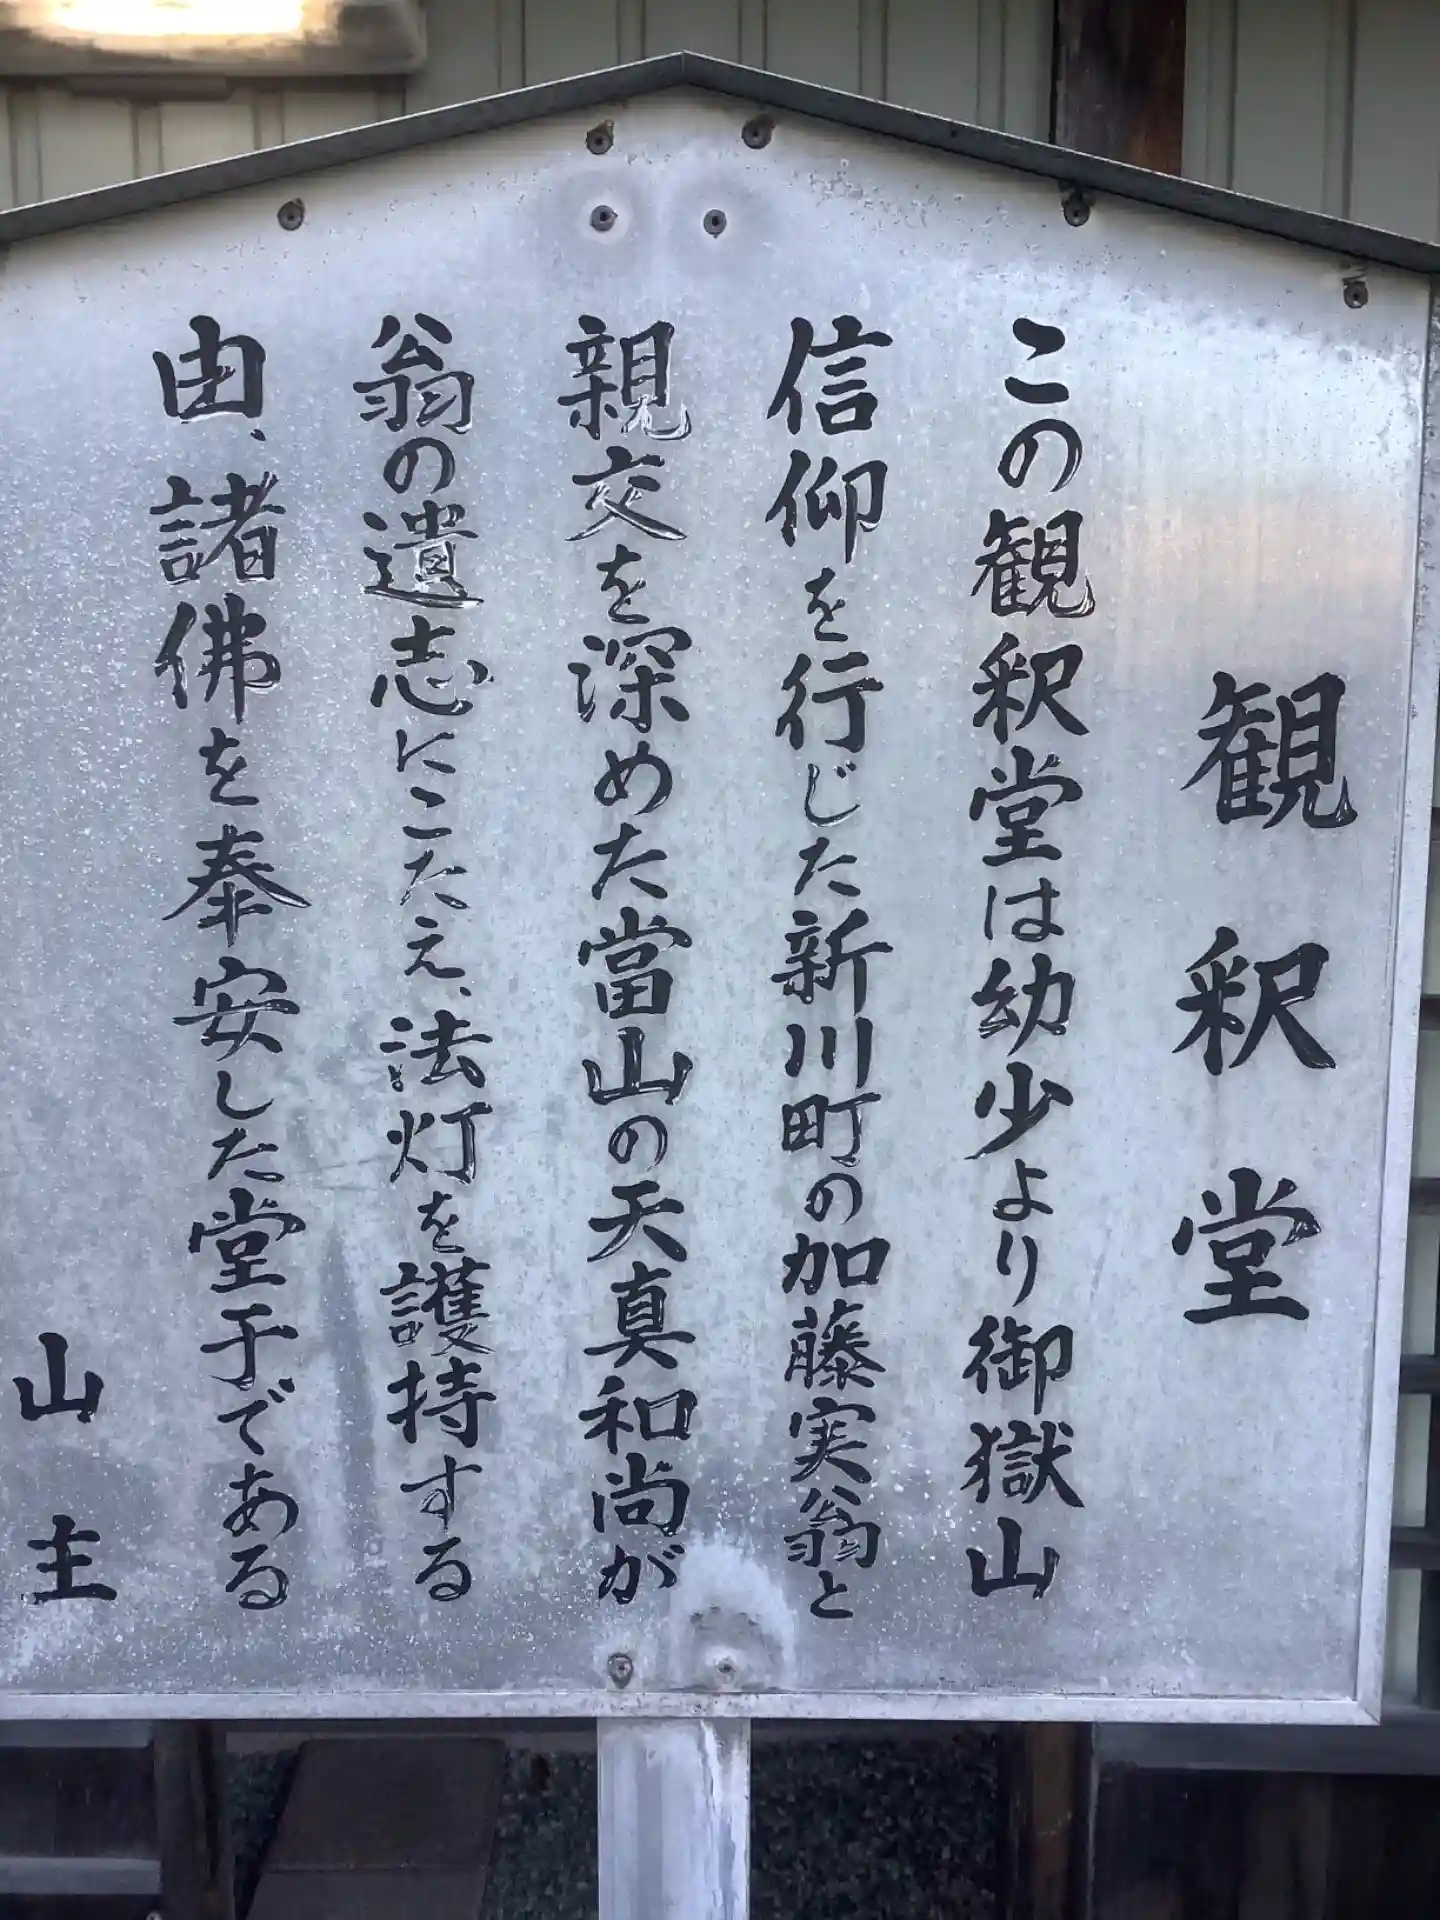 観釈堂
この観釈堂は幼少より御獄山
信仰を行じた新川町の加藤実翁と
親交を深めた當山の天真和尚が
翁の遺志にこたえ、法灯を護持する
由、諸佛を奉安した堂于である
山主